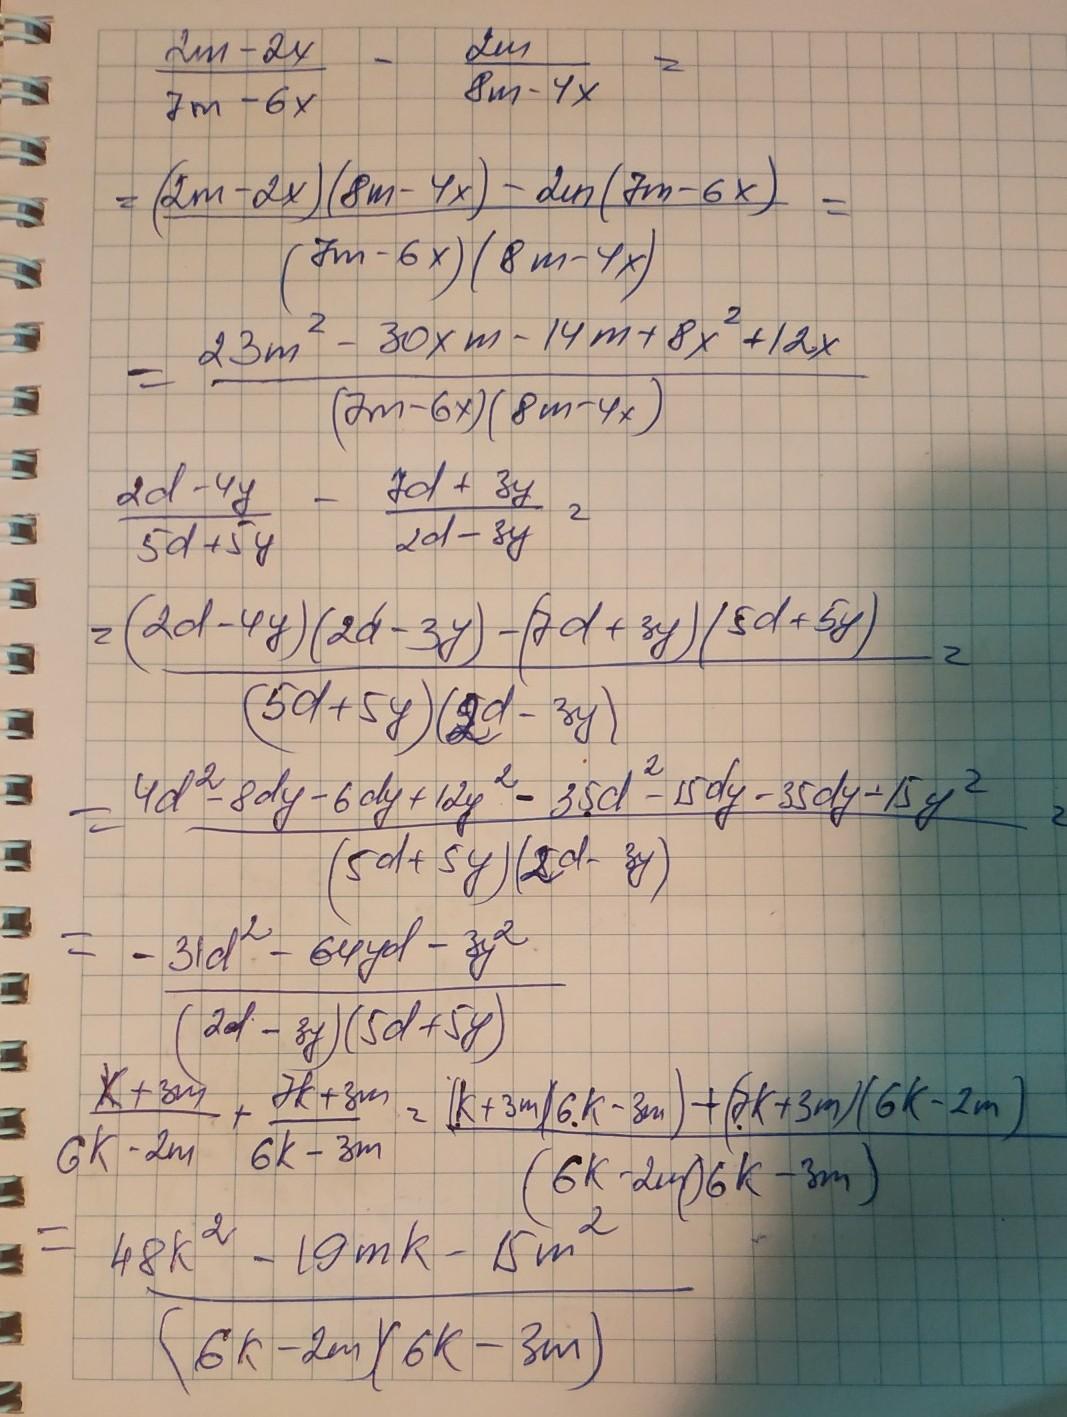 2m - 2x / 7m - 6x - 2m / 8m - 4x =
= (2m - 2x)(8m - 4x) - 2m(7m - 6x) / (7m - 6x)(8m - 4x) =
= 23m² - 30xm - 14m + 8x² + 12x / (7m - 6x)(8m - 4x)
2d - 4y / 5d + 5y - 7d + 3y / 2d - 3y =
= (2d - 4y)(2d - 3y) - (7d + 3y)(5d + 5y) / (5d + 5y)(2d - 3y) =
= 4d² - 8dy - 6dy + 12y² - 35d² - 15dy - 35dy - 15y² / (5d + 5y)(2d - 3y) =
= - 31d² - 64yd - 3y² / (2d - 3y)(5d + 5y)
k + 3m / 6k - 2m + 7k + 3m / 6k - 3m = (k + 3m)(6k - 3m) + (7k + 3m)(6k - 2m) / (6k - 2m)6k - 3m)
= 48k² - 19mk - 15m² / (6k - 2m)(6k - 3m)